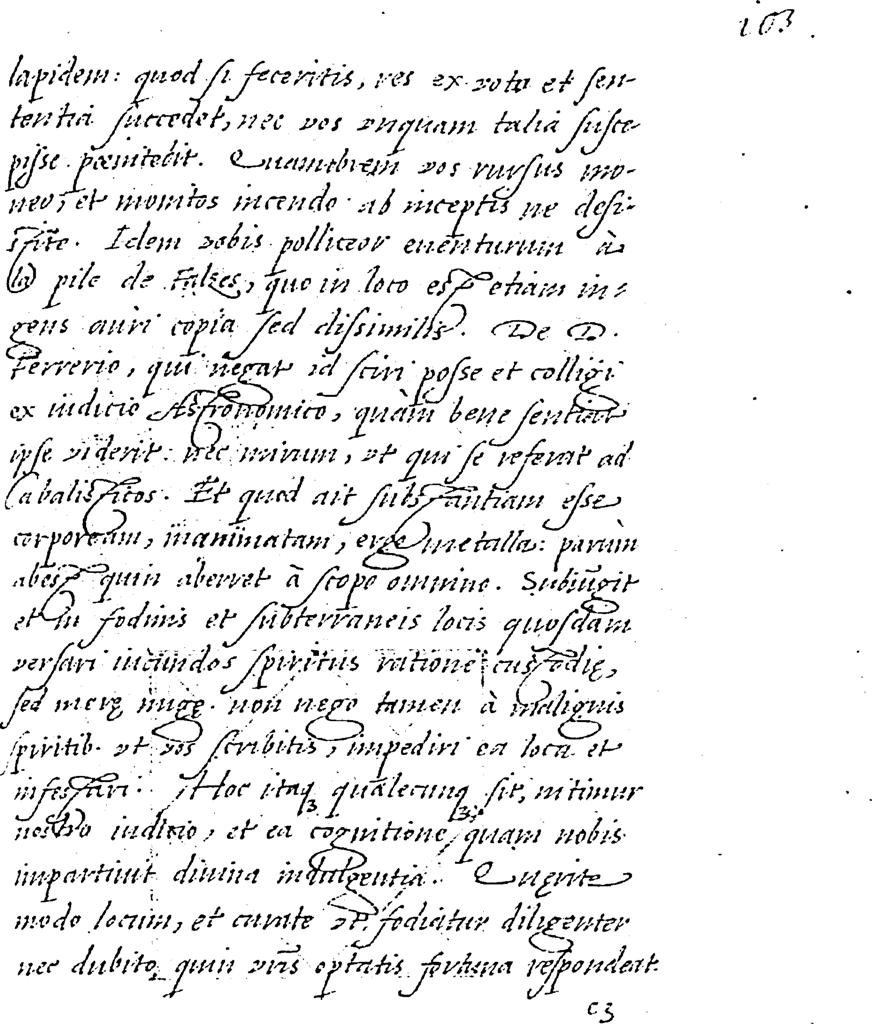 103
lapidem: quod si feceritis, res ex voto et sen-
tentia succedet, nec vos vnquam talia susce-
pisse pœnitebit. Quamobrem vos rursus mo-
neo, et monitos incendo ab inceptis ne desi-
stite. Idem vobis polliceor euenturum à
la pile de Falzes, quo in loco est etiam in-
gens auri copia sed dissimilis. De D.
Ferrerio, qui negat id sciri posse et colligi
ex iudicio Astronomico, quàm bene sentiat
ipse viderit: nec mirum, vt qui se referat ad
Cabalisticos. Et quod ait substantiam esse
corpoream, inanimatam, ergo metalla: parùm
abest quin aberret à scopo omnino. Subiungit
et in fodinis et subterraneis locis quosdam
versari iucundos spiritus ratione custodię,
sed merę nugę. non nego tamen à malignis
spiritib. vt vos scribitis, impediri ea loca et
infestari. Hoc itaq qualecunq sit, nitimur
nostro iudicio, et ea cognitione, quam nobis
impartiuit diuina indulgentia. Quęrite
modo locum, et curate vt fodiatur diligenter
nec dubito, quin vr̃is optatis fortuna respondeat.
c3